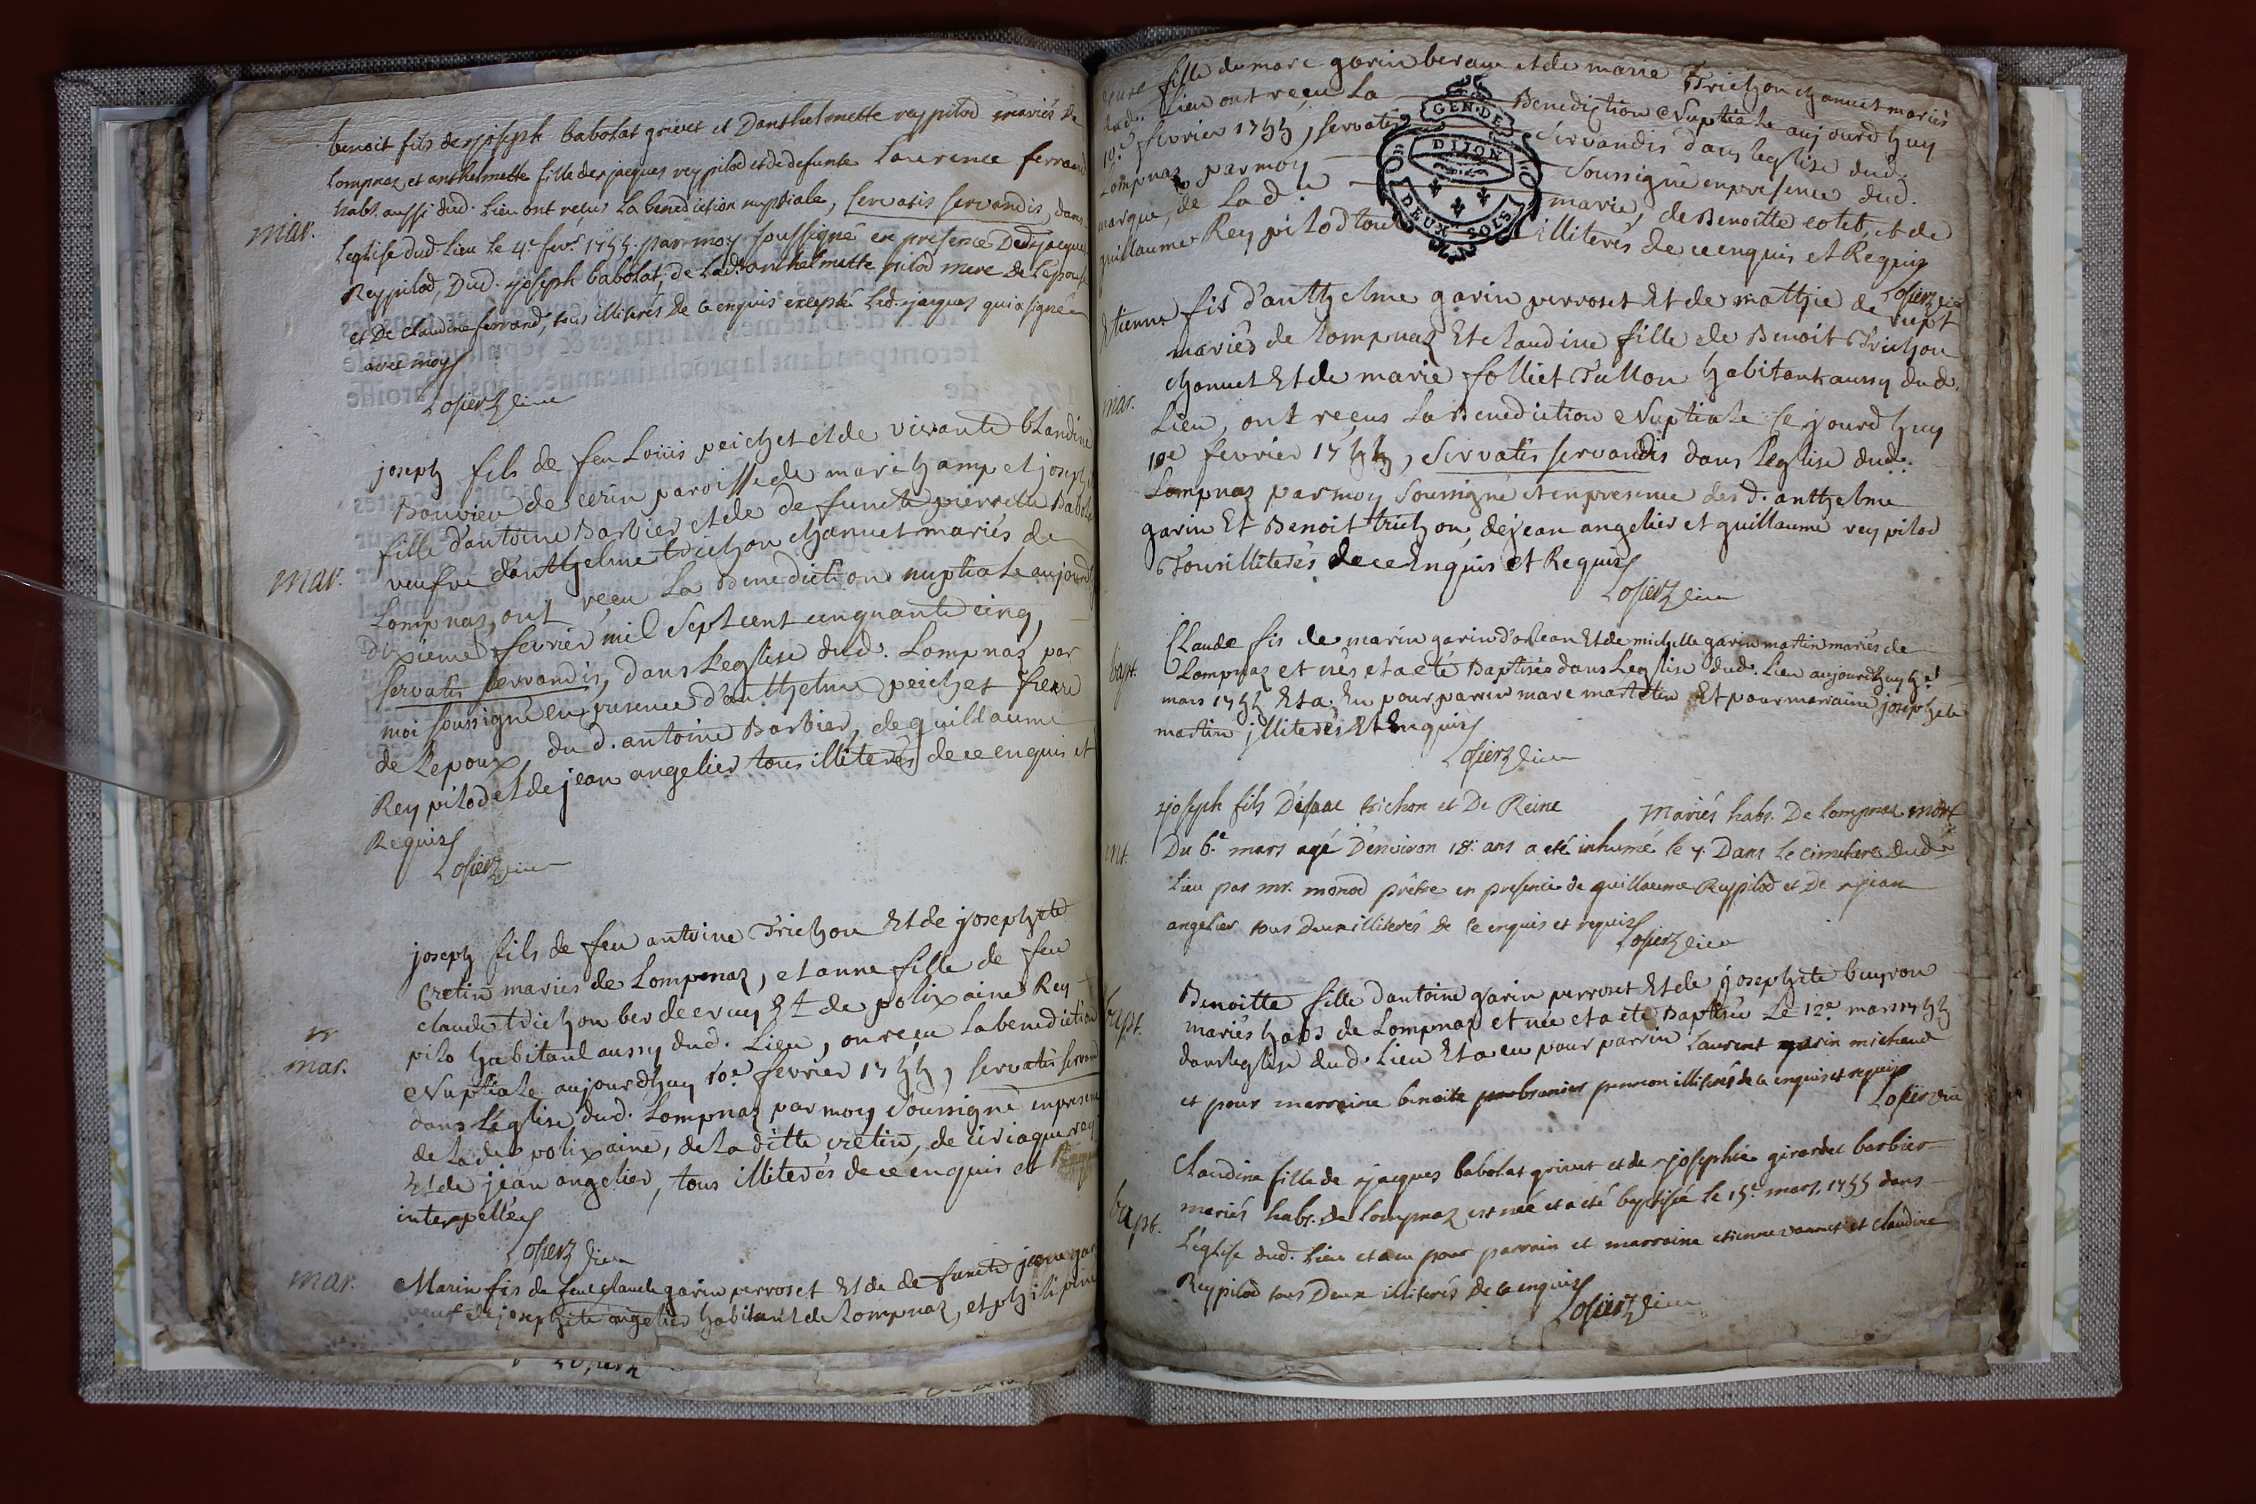 benoit fils de joseph babolat grivet et Danthelmette reypilod mariés de
Lompnaz et anthelmette fille de jacques reypilod et de defunte Laurence ferrand
habt. aussi dud. Lieu ont recus La benediction nuptiale, servatis servandis, dans
mar.
Leglise dud Lieu le 4e fevr. 1755 par moy soussigné en presence Dud jacques
Reypilod, Dud. joseph babolat, de Lad. anthelmette pilod mere de L'epoux
et De claudine ferrand, tous illiterés De ce enquis excepté Led. jacques qui a signé
avec moy
Losierz
joseph fils de feu Louis peichet et de vivante blandine
Bouvier de cerin paroisse de marchamp et joseph
fille d'antoine Barbier et de defuncte pierrette Babol
mar.
veufve d'anthelme trichon chanuet mariés de
Lompnaz, ont reçeu La Benediction nuptiale aujourd
dixième fevrier mil Sept cent cinquante cinq,
servatis servandis, dans L'eglise dud. Lompnaz par
moi soussigné en presence d'anthelme peichet frere
de Lepoux, du d. antoine Barbier, de guillaume
Rey pilod et de jean angelier tous illiterés de ce enquis et
Requis
Losierz
joseph fils de feu antoine Trichon Et de josephte
Cretin mariés de Lompnaz, et anne fille de feu
claude trichon berdecruy Et de polixaine Rey
pilo habitant aussy dud. Lieu, on reçu La benediction
mar.
Nuptiale aujourdhuy 10e fevrier 1755, servatis servand
dans L'eglise dud. Lompnaz par moy soussigné en presence
de Lade polixaine, de La ditte cretin, de ciriaque rey
Et de jean angelier, tous illiterés de ce enquis et
interpellés
Losierz
mar.
Marin fis de feu claude garin perroset Et de defuncte jeane gar
veuf de josephte angelier habitant de Lompnaz, et philipine
veuve fille de marc garin beraux et de marie Trichon chanuet mariés
dud. Lieu ont reçeu La Benediction Nuptiale aujourdhuy
10e fevrier 1755, servatis servandis dans Leglise dud.
Lompnaz par moy Soussigné en presence dud.
marque, de Lad. marie, de Benoitte colet, et de
guillaume Rey pilod tous illiterés de ce enquis et Requis
GEN. DE
DIJON
DEUX SOLS
Losierz
Etienne fis d'anthelme garin perroset Et de mathie de rupt
mariés de Lompnaz Et claudine fille de Benoit Trichon
mar.
chanuet Et de marie folliet Tullon habitant aussy dud.
Lieu, ont reçeus La Benediction Nuptiale Ce jourdhuy
10e fevrier 1755, servatis servandis dans Leglise dud.
Lompnaz par moy Soussigné et en presence des d. anthelme
garin Et Benoit trichon, de jean angelier et guillaume rey pilod
Tous illiterés de ce Enquis et Requis
Losierz
bapt.
Claude fis de marin garin d'orlean Et de michelle garin martin mariés de
Lompnaz et nés et a eté Baptisés dans Leglise dud. Lieu aujourdhuy 5e
mars 1755 Et a Eu pour parrin marc martin Et pour marraine josephete
martin jlliterés Et Enquis
Losierz
joseph fils D'isaac trichon et De Reine Mariés habs. De Lompnaz mort
int.
Du 6e mars agé D'environ 18 ans a eté inhumé le 7. Dans Le cimetiere dud
Lieu par mr. monod prêtre en presence de guillaume Reypilod et De jean
angelier tous deux illiterés De ce enquis et requis
Losierz
bapt.
Benoitte fille d'antoine garin perroset Et de josephte buyron
mariés habs de Lompnaz et née et a eté Baptisée Le 12e mars 1755
dans leglise du d. Lieu Et a eu pour parrin Laurent garin michaud
et pour marraine benoite illiterés de ce enquis et requis
Losierz
Claudine fille de jacques babolat grivet et de josephte girardet barbier
bapt.
mariés habs. de Lompnaz est née et a eté baptisée le 15e mars 1755 dans
L'eglise dud. Lieu et a eu pour parrain et marraine etienne vannet et claudine
Reypilod tous Deux illiterés de ce enquis
Losierz